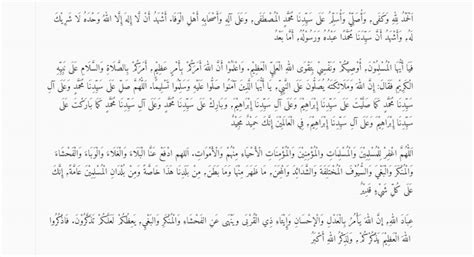 اَلْحَمْدُ لِلهِ وَكَفَى، وَأُصَلِّيْ وَأُسَلِّمُ عَلَى سَيِّدِنَا مُحَمَّدٍ الْمُصْطَفَى، وَعَلَى آلِهِ وَأَصْحَابِهِ أَهْلِ الْوَفَا. أَشْهَدُ أَنْ لَا إِلٰهَ إِلَّا اللهُ وَحْدَهُ لَا شَرِيْكَ
لَهُ، وَأَشْهَدُ أَنَّ سَيِّدَنَا مُحَمَّدًا عَبْدُهُ وَرَسُوْلُهُ. أَمَّا بَعْدُ
فَيَا أَيُّهَا الْمُسْلِمُوْنَ، أُوْصِيْكُمْ وَنَفْسِيْ بِتَقْوَى اللهِ الْعَلِيِّ الْعَظِيْمِ، وَاعْلَمُوْا أَنَّ اللهَ أَمَرَكُمْ بِأَمْرٍ عَظِيْمٍ، أَمَرَكُمْ بِالصَّلَاةِ وَالسَّلَامِ عَلَى نَبِيِّهِ
الْكَرِيْمِ فَقَالَ: إِنَّ اللهَ وَمَلَائِكَتَهُ يُصَلُّوْنَ عَلَى النَّبِيِّ، يَا أَيُّهَا الَّذِيْنَ آمَنُوْا صَلُّوْا عَلَيْهِ وَسَلِّمُوْا تَسْلِيْمًا، اَللّٰهُمَّ صَلِّ عَلَى سَيِّدِنَا مُحَمَّدٍ وَعَلَى آلِ
سَيِّدِنَا مُحَمَّدٍ كَمَا صَلَّيْتَ عَلَى سَيِّدِنَا إِبْرَاهِيْمَ وَعَلَى آلِ سَيِّدِنَا إِبْرَاهِيْمَ، وَبَارِكْ عَلَى سَيِّدِنَا مُحَمَّدٍ وَعَلَى آلِ سَيِّدِنَا مُحَمَّدٍ كَمَا بَارَكْتَ عَلَى
سَيِّدِنَا إِبْرَاهِيْمَ وَعَلَى آلِ سَيِّدِنَا إِبْرَاهِيْمَ، فِي الْعَالَمِيْنَ إِنَّكَ حَمِيْدٌ مَجِيْدٌ
اَللّٰهُمَّ اغْفِرْ لِلْمُسْلِمِيْنَ وَالْمُسْلِمَاتِ وَالْمُؤْمِنِيْنَ وَالْمُؤْمِنَاتِ الْأَحْيَاءِ مِنْهُمْ وَالْأَمْوَاتِ، اللهم ادْفَعْ عَنَّا الْبَلَاءَ وَالْغَلَاءَ وَالْوَبَاءَ وَالْفَحْشَاءَ
وَالْمُنْكَرَ وَالْبَغْيَ وَالسُّيُوْفَ الْمُخْتَلِفَةَ وَالشَّدَائِدَ وَالْمِحَنَ، مَا ظَهَرَ مِنْهَا وَمَا بَطَنَ، مِنْ بَلَدِنَا هَذَا خَاصَّةً وَمِنْ بُلْدَانِ الْمُسْلِمِيْنَ عَامَّةً، إِنَّكَ
عَلَى كُلِّ شَيْءٍ قَدِيْرٌ
عِبَادَ اللهِ، إِنَّ اللهَ يَأْمُرُ بِالْعَدْلِ وَالْإِحْسَانِ وَإِيْتَاءِ ذِي الْقُرْبَى وَيَنْهَى عَنِ الْفَحْشَاءِ وَالْمُنْكَرِ وَالْبَغْيِ، يَعِظُكُمْ لَعَلَّكُمْ تَذَكَّرُوْنَ. فَاذْكُرُوا
اللهَ الْعَظِيْمَ يَذْكُرْكُمْ، وَلَذِكْرُ اللهِ أَكْبَرُ